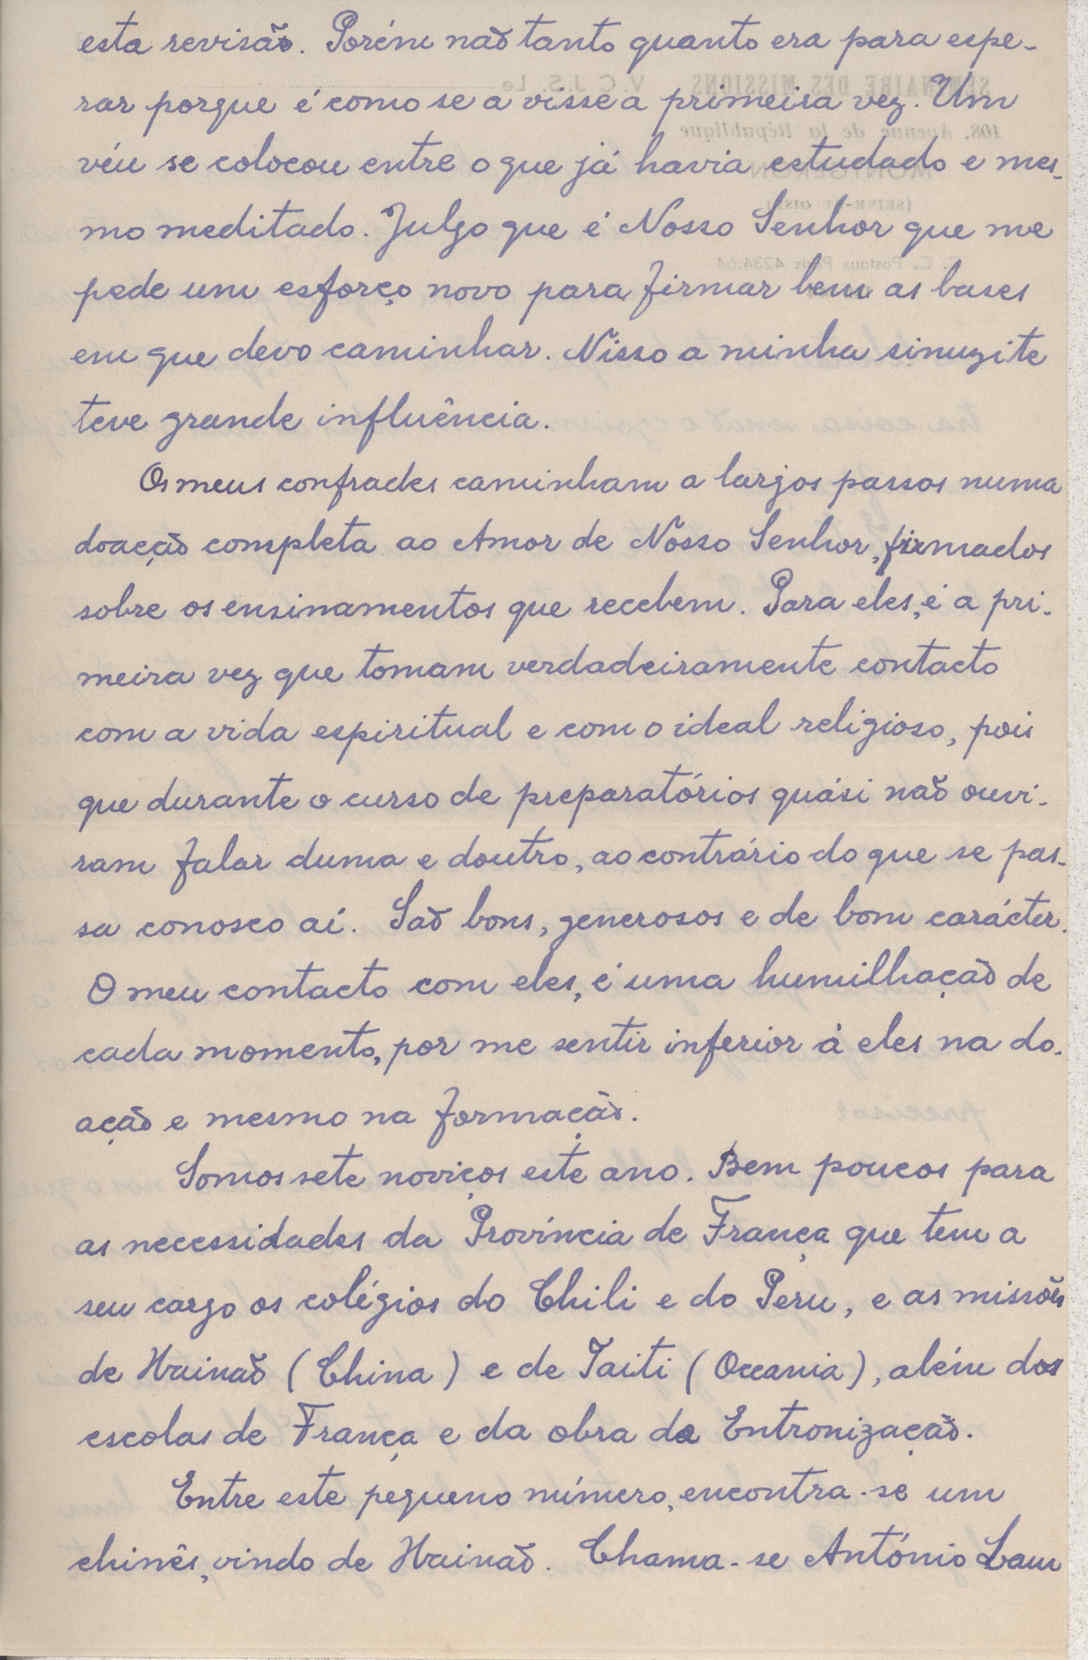 esta revisão. Porém não tanto quanto era para espe-
rar porque é como se a visse a primeira vez. Um
véu se colocou entre o que já havia estudado e mes-
mo meditado. Julgo que é Nosso Senhor que me
pede um esforço novo para firmar bem as bases
em que devo caminhar. Nisso a minha sinuzite
teve grande influência.
Os meus confrades caminham a largos passos numa
doacção completa ao Amor de Nosso Senhor, firmados
sobre os ensinamentos que recebem. Para eles, é a pri-
meira vez que tomam verdadeiramente contacto
com a vida espiritual e com o ideal religioso, pois
que durante o curso de preparatórios quási não ouvi-
ram falar duma e doutro, ao contrário do que se pas-
sa conosco aí. São bons, generosos e de bom carácter.
O meu contacto com eles, é uma humilhação de
cada momento, por me sentir inferior á eles na do-
ação e mesmo na formação.
Somos sete noviços este ano. Bem poucos para
as necessidades da Província de França que tem a
seu cargo os colégios do Chili e do Peru, e as missões
de Hainão (China) e de Taiti (Oceania), além das
escolas de França e da obra da Entronização.
Entre este pequeno número, encontra-se um
chinês, vindo de Hainão. Chama-se António Lam